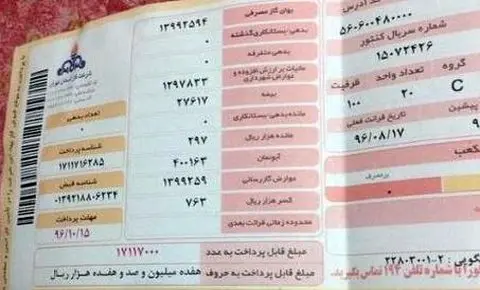 آدرس
۵۶۰۶۰۰۴۸۰۰۰۰
شماره سریال کنتور
۱۵۰۷۲۴۲۶
گروه تعداد واحد ظرفیت
C ۲۰ ۱۰۰
پیشین تاریخ قرائت فعلی
۹۶/۰۸/۱۷
مکعب
پرمصرف
۰
۲۲۸۰۳۰۰۱-۲
را با شماره تلفن ۱۹۴ تماس بگیرید.
بهای گاز مصرفی ۱۳۹۹۲۵۹۴
بدهی-بستانکاری گذشته ۰
بدهی متفرقه ۰
مالیات بر ارزش افزوده و
عوارض شهرداری ۱۲۹۷۸۳۳
بیمه ۲۷۶۱۷
مانده بدهی-بستانکاری ۰
مانده هزار ریال ۲۹۷
آبونمان ۴۰۰۱۶۳
عوارض گازرسانی ۱۳۹۹۲۵۹
کسر هزار ریال ۷۶۳
محدوده زمانی قرائت بعدی
مبلغ قابل پرداخت به عدد ۱۷۱۱۷۰۰۰
مبلغ قابل پرداخت به حروف هفده میلیون و صد و هفده هزار ریال
شرکت گاز استان
تعداد بدهی
۰
شناسه پرداخت
۱۷۱۱۷۱۶۲۸۵
شناسه قبض
۰۱۳۹۲۱۸۸۰۶۲۳۴
مهلت پرداخت
۹۶/۱۰/۱۵